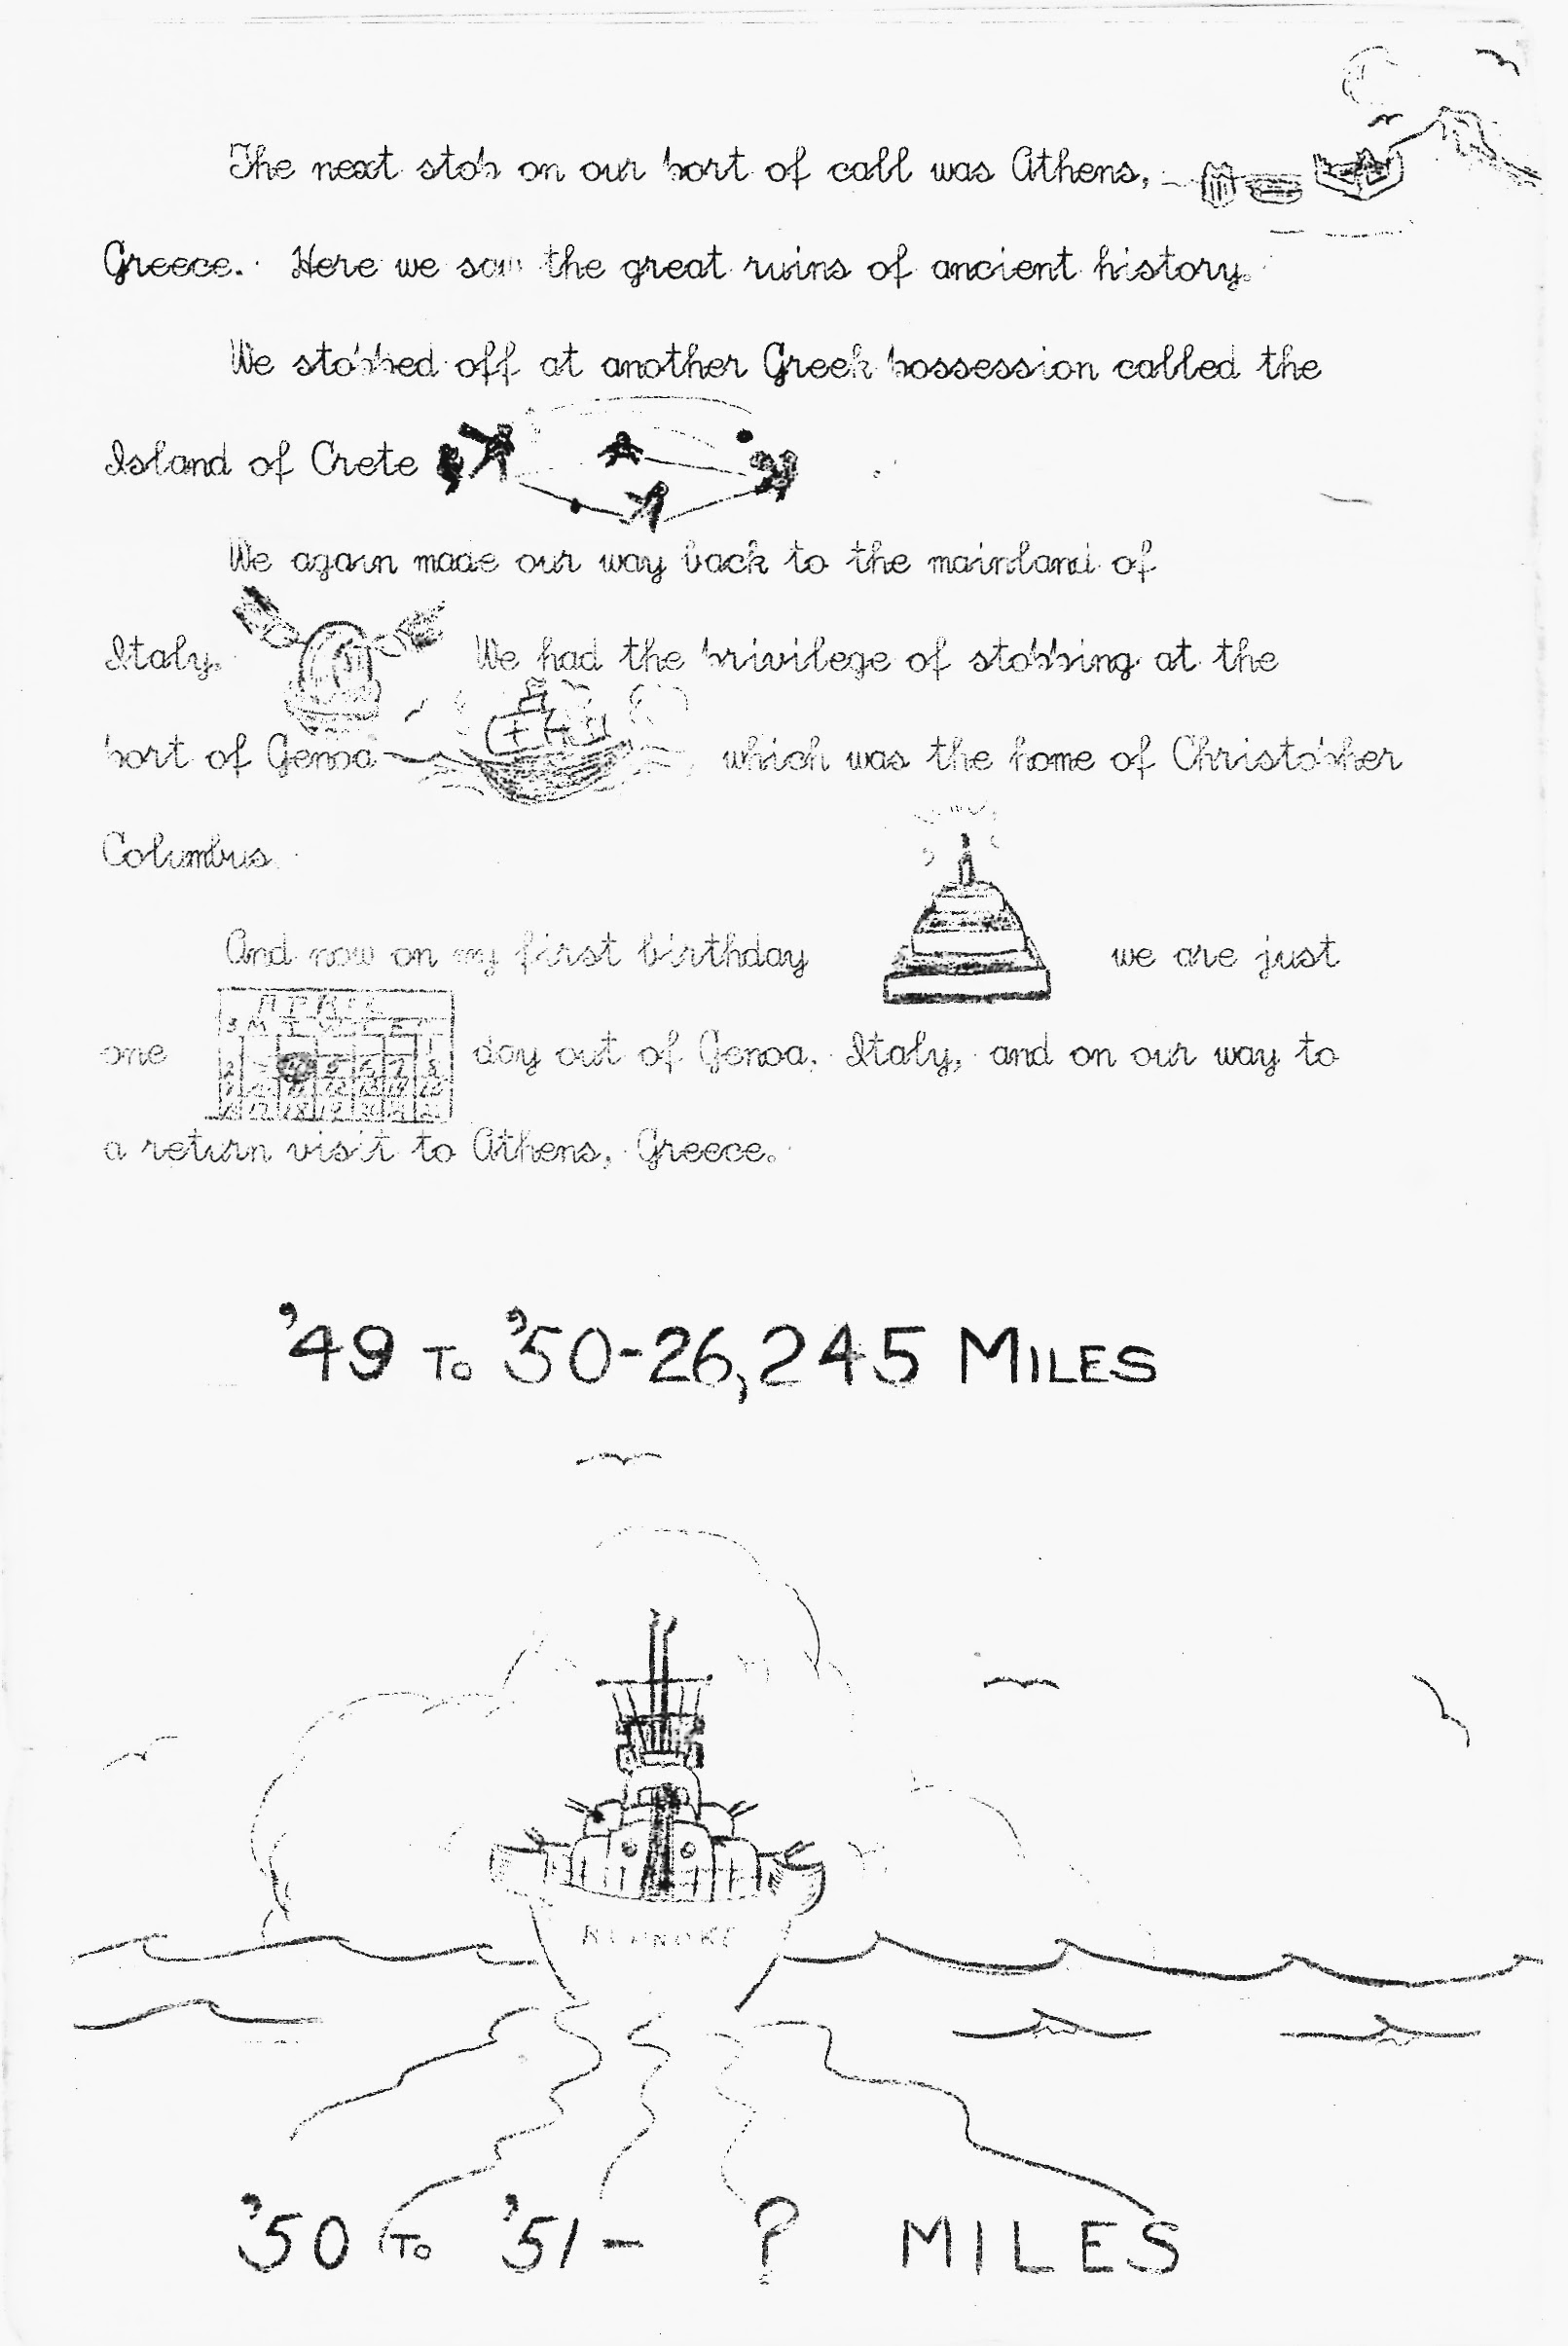 The next stop on our port of call was Athens,
Greece. Here we saw the great ruins of ancient history.
We stopped off at another Greek possession called the
Island of Crete
We again made our way back to the mainland of
Italy. We had the privilege of stopping at the
port of Genoa which was the home of Christopher
Columbus.
And now on my first birthday we are just
APRIL
one day out of Genoa, Italy, and on our way to
a return visit to Athens, Greece.
'49 To '50-26,245 MILES
ROANOKE
'50 To '51- ? MILES